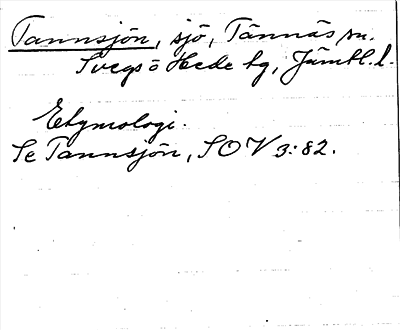 Tannsjön, sjö, Tännäs sn.
Svegs o Hede tg, Jämtl. l.
Etymologi.
Se Tannsjön, SOV 3:82.